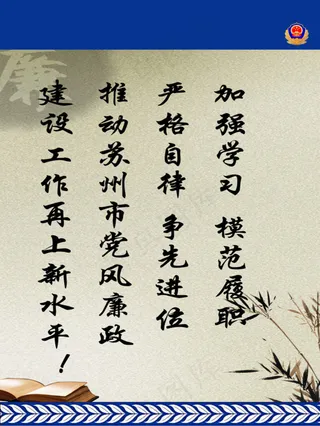 加强学习 模范履职
严格自律 争先进位
推动苏州市党风廉政
建设工作再上新水平！
廉